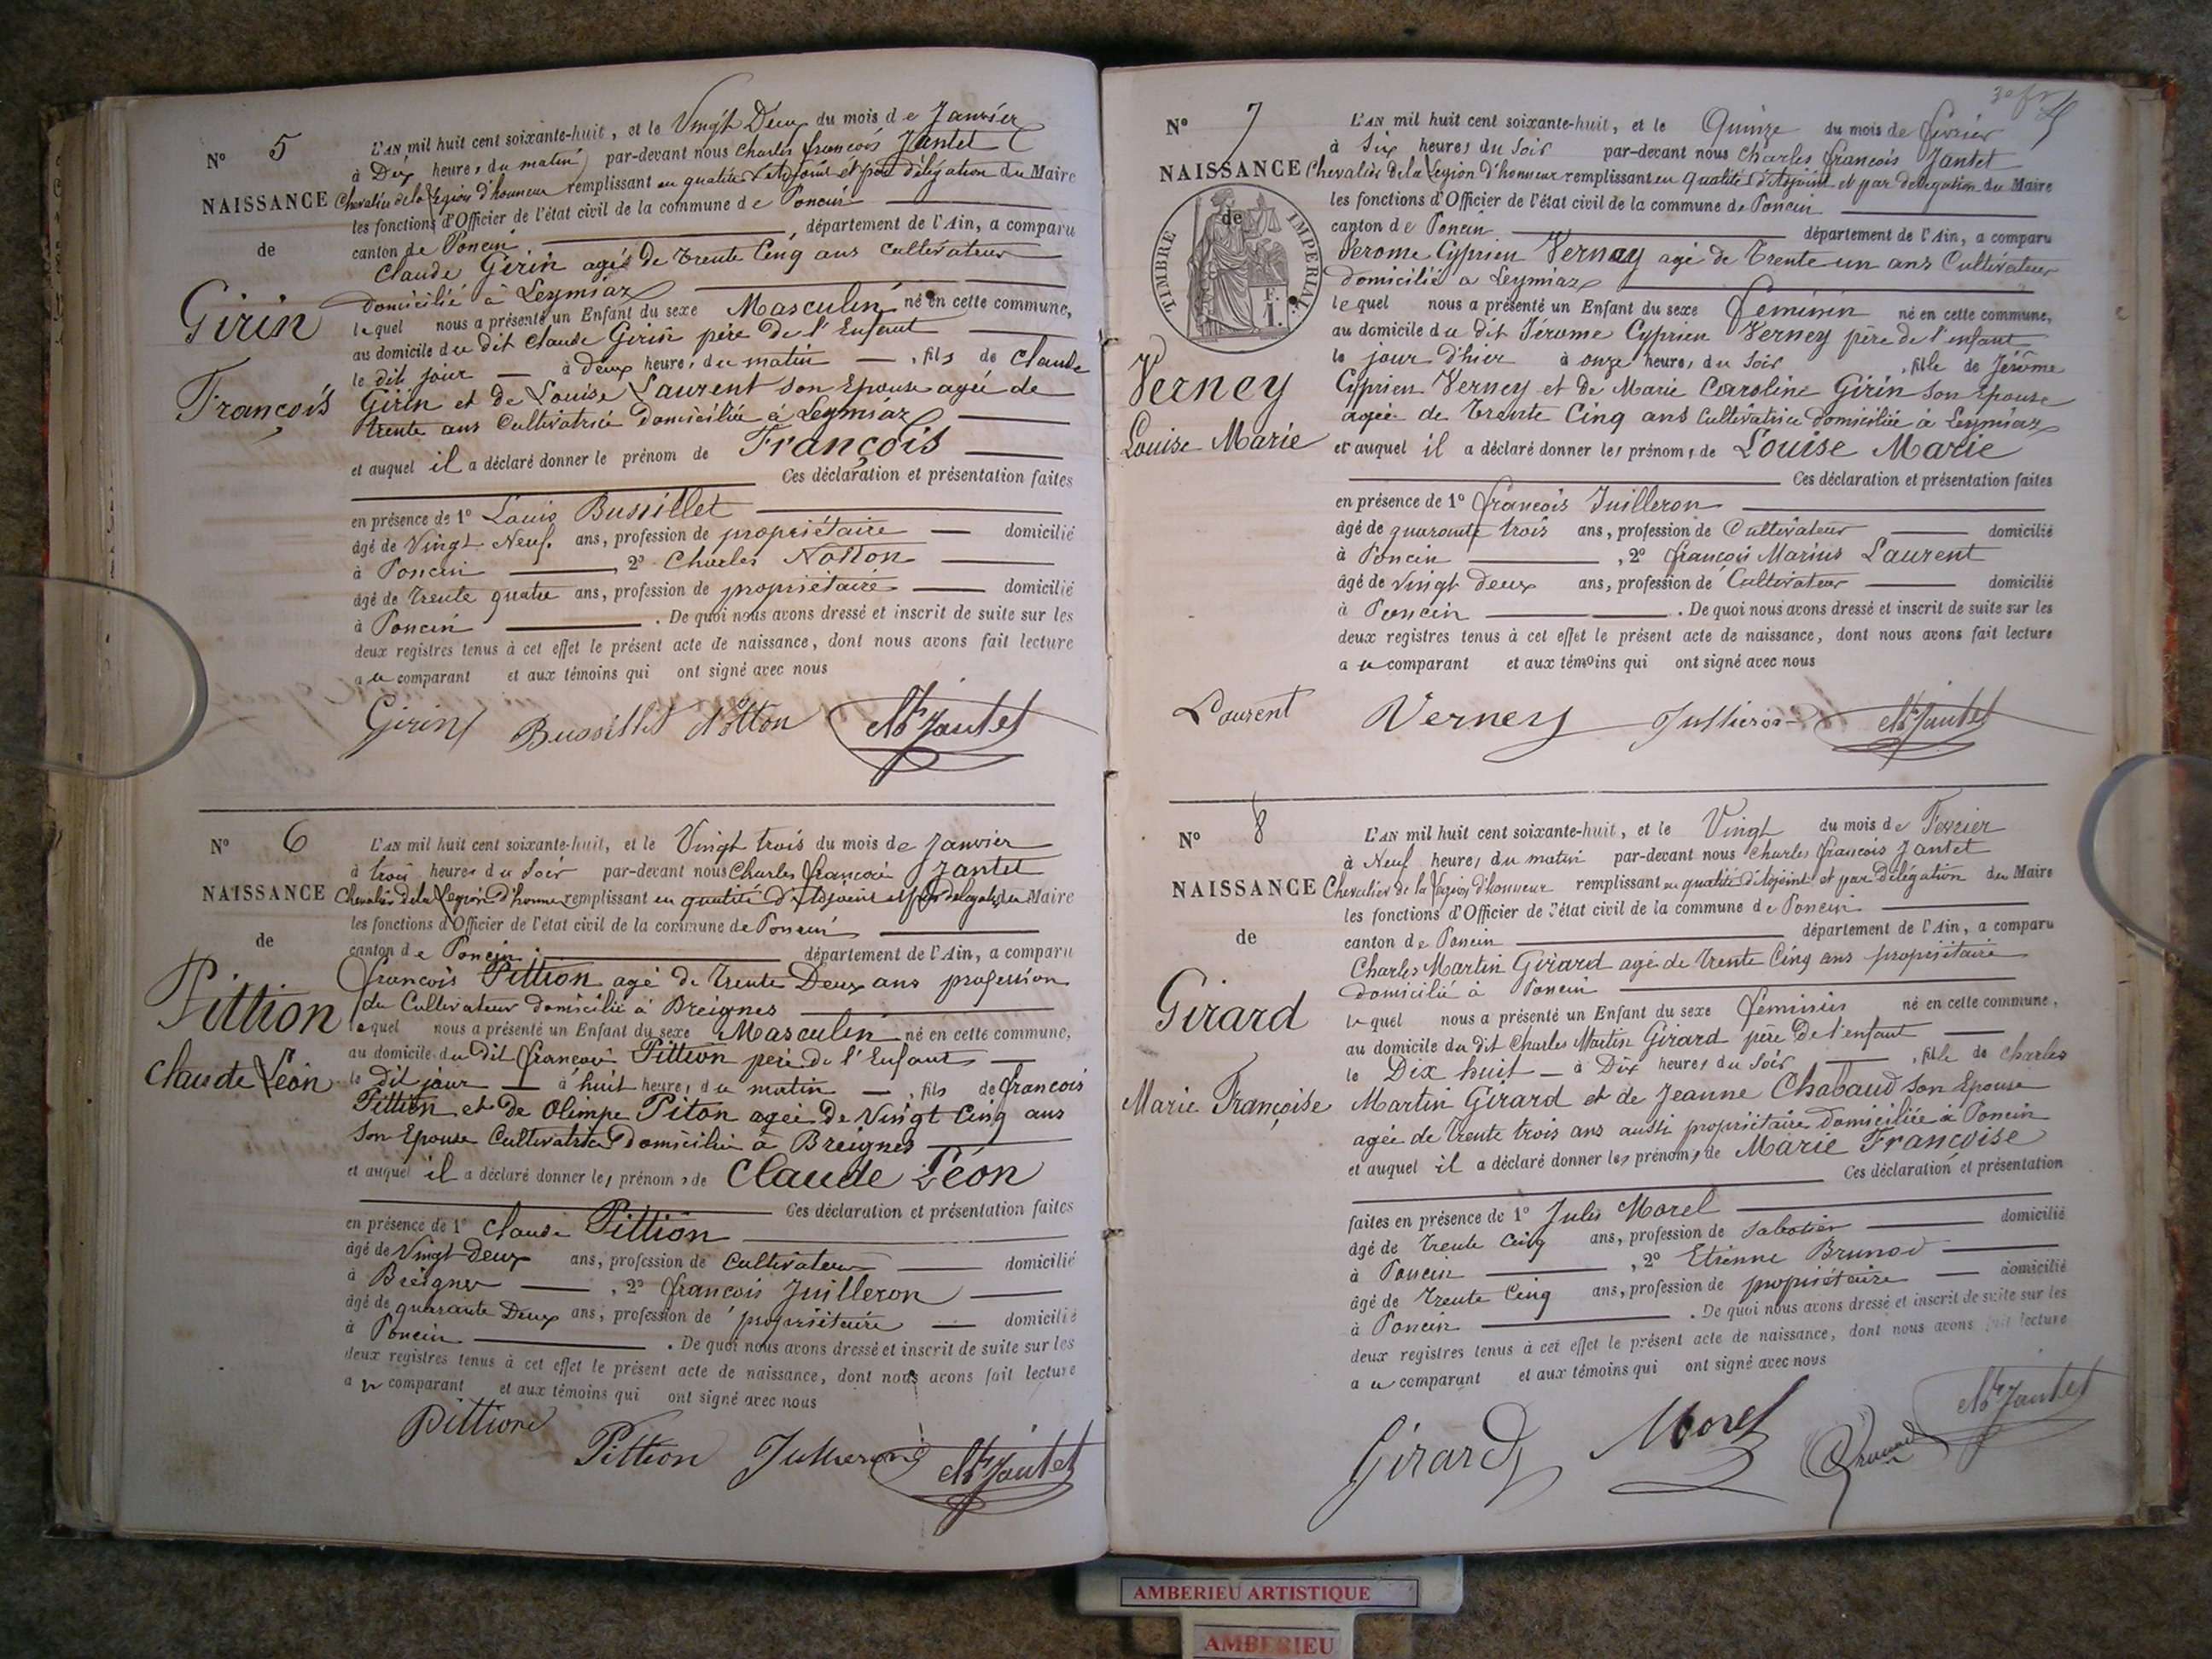 N° 5
NAISSANCE
de
Girin
François
L'AN mil huit cent soixante-huit, et le Vingt Deux du mois de Janvier
à Dix heures du matin par-devant nous Charles François Jantet
Chevalier de la Légion d'honneur remplissant en qualité d'Adjoint et par délégation du Maire
les fonctions d'Officier de l'état civil de la commune de Poncin
canton de Poncin, département de l'Ain, a comparu
Claude Girin agé de trente Cinq ans Cultivateur
domicilié à Leymiaz
lequel nous a présenté un Enfant du sexe Masculin né en cette commune,
au domicile du dit Claude Girin père de l'Enfant
le dit jour à deux heures du matin, fils de Claude
Girin et de Louise Laurent son Epouse agée de
trente ans Cultivatrice domiciliée à Leymiaz
et auquel il a déclaré donner le prénom de François
Ces déclaration et présentation faites
en présence de 1° Louis Bussillet
âgé de Vingt Neuf ans, profession de propriétaire domicilié
à Poncin, 2° Charles Notton
âgé de trente quatre ans, profession de propriétaire domicilié
à Poncin. De quoi nous avons dressé et inscrit de suite sur les
deux registres tenus à cet effet le présent acte de naissance, dont nous avons fait lecture
au comparant et aux témoins qui ont signé avec nous
Girin Bussillet Notton Jantet
N° 6
NAISSANCE
de
Pittion
Claude Léon
L'AN mil huit cent soixante-huit, et le Vingt trois du mois de Janvier
à trois heures du Soir par-devant nous Charles François Jantet
Chevalier de la Légion d'honneur remplissant en qualité d'Adjoint et par délégation du Maire
les fonctions d'Officier de l'état civil de la commune de Poncin
canton de Poncin département de l'Ain, a comparu
François Pittion agé de trente Deux ans profession
de Cultivateur domicilié à Breignes
lequel nous a présenté un Enfant du sexe Masculin né en cette commune,
au domicile du dit François Pittion père de l'Enfant
le dit jour à huit heures du matin, fils de François
Pittion et de Olimpe Piton agée de Vingt Cinq ans
son Epouse Cultivatrice domiciliée à Breignes
et auquel il a déclaré donner les prénoms de Claude Léon
Ces déclaration et présentation faites
en présence de 1° Claude Pittion
âgé de Vingt Deux ans, profession de Cultivateur domicilié
à Breignes, 2° François Juilleron
âgé de quarante Deux ans, profession de propriétaire domicilié
à Poncin. De quoi nous avons dressé et inscrit de suite sur les
deux registres tenus à cet effet le présent acte de naissance, dont nous avons fait lecture
au comparant et aux témoins qui ont signé avec nous
Pittion
Pittion Julleron Jantet
N° 7
NAISSANCE
de
TIMBRE IMPERIAL
F.
1.
Verney
Louise Marie
L'AN mil huit cent soixante-huit, et le Quinze du mois de février
à Six heures du Soir par-devant nous Charles François Jantet
Chevalier de la Légion d'honneur remplissant en qualité d'Adjoint et par délégation du Maire
les fonctions d'Officier de l'état civil de la commune de Poncin
canton de Poncin département de l'Ain, a comparu
Jérome Cyprien Vernay agé de trente un ans Cultivateur
domicilié à Leymiaz
lequel nous a présenté un Enfant du sexe féminin né en cette commune,
au domicile du dit Jérome Cyprien Verney père de l'enfant
le jour d'hier à onze heures du Soir, fille de Jérôme
Cyprien Verney et de Marie Caroline Girin son Epouse
agée de trente Cinq ans Cultivatrice domiciliée à Leymiaz
et auquel il a déclaré donner les prénoms de Louise Marie
Ces déclaration et présentation faites
en présence de 1° François Juilleron
âgé de quarante trois ans, profession de Cultivateur domicilié
à Poncin, 2° François Marius Laurent
âgé de vingt deux ans, profession de Cultivateur domicilié
à Poncin. De quoi nous avons dressé et inscrit de suite sur les
deux registres tenus à cet effet le présent acte de naissance, dont nous avons fait lecture
au comparant et aux témoins qui ont signé avec nous
Laurent Verney Julleron Jantet
N° 8
NAISSANCE
de
Girard
Marie Françoise
L'AN mil huit cent soixante-huit, et le Vingt du mois de Fevrier
à Neuf heures du matin par-devant nous Charles François Jantet
Chevalier de la Légion d'honneur remplissant en qualité d'Adjoint et par délégation du Maire
les fonctions d'Officier de l'état civil de la commune de Poncin
canton de Poncin département de l'Ain, a comparu
Charles Martin Girard agé de trente Cinq ans propriétaire
domicilié à Poncin
lequel nous a présenté un Enfant du sexe féminin né en cette commune,
au domicile du dit Charles Martin Girard père de l'enfant
le Dix huit à Dix heures du Soir, fille de Charles
Martin Girard et de Jeanne Chabaud son Epouse
agée de trente trois ans aussi propriétaire domiciliée à Poncin
et auquel il a déclaré donner les prénoms de Marie Francoise
Ces déclaration et présentation
faites en présence de 1° Jules Morel
âgé de trente Cinq ans, profession de Sabotier domicilié
à Poncin, 2° Etienne Brunod
âgé de trente Cinq ans, profession de propriétaire domicilié
à Poncin. De quoi nous avons dressé et inscrit de suite sur les
deux registres tenus à cet effet le présent acte de naissance, dont nous avons fait lecture
au comparant et aux témoins qui ont signé avec nous
Girard Morel Brunod Jantet
AMBERIEU ARTISTIQUE
AMBERIEU